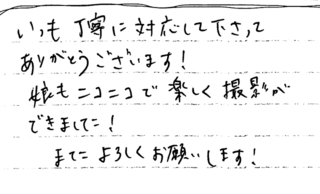 いつも丁寧に対応して下さって
ありがとうございます!
娘もニコニコで楽しく撮影が
できました!
またよろしくお願いします!